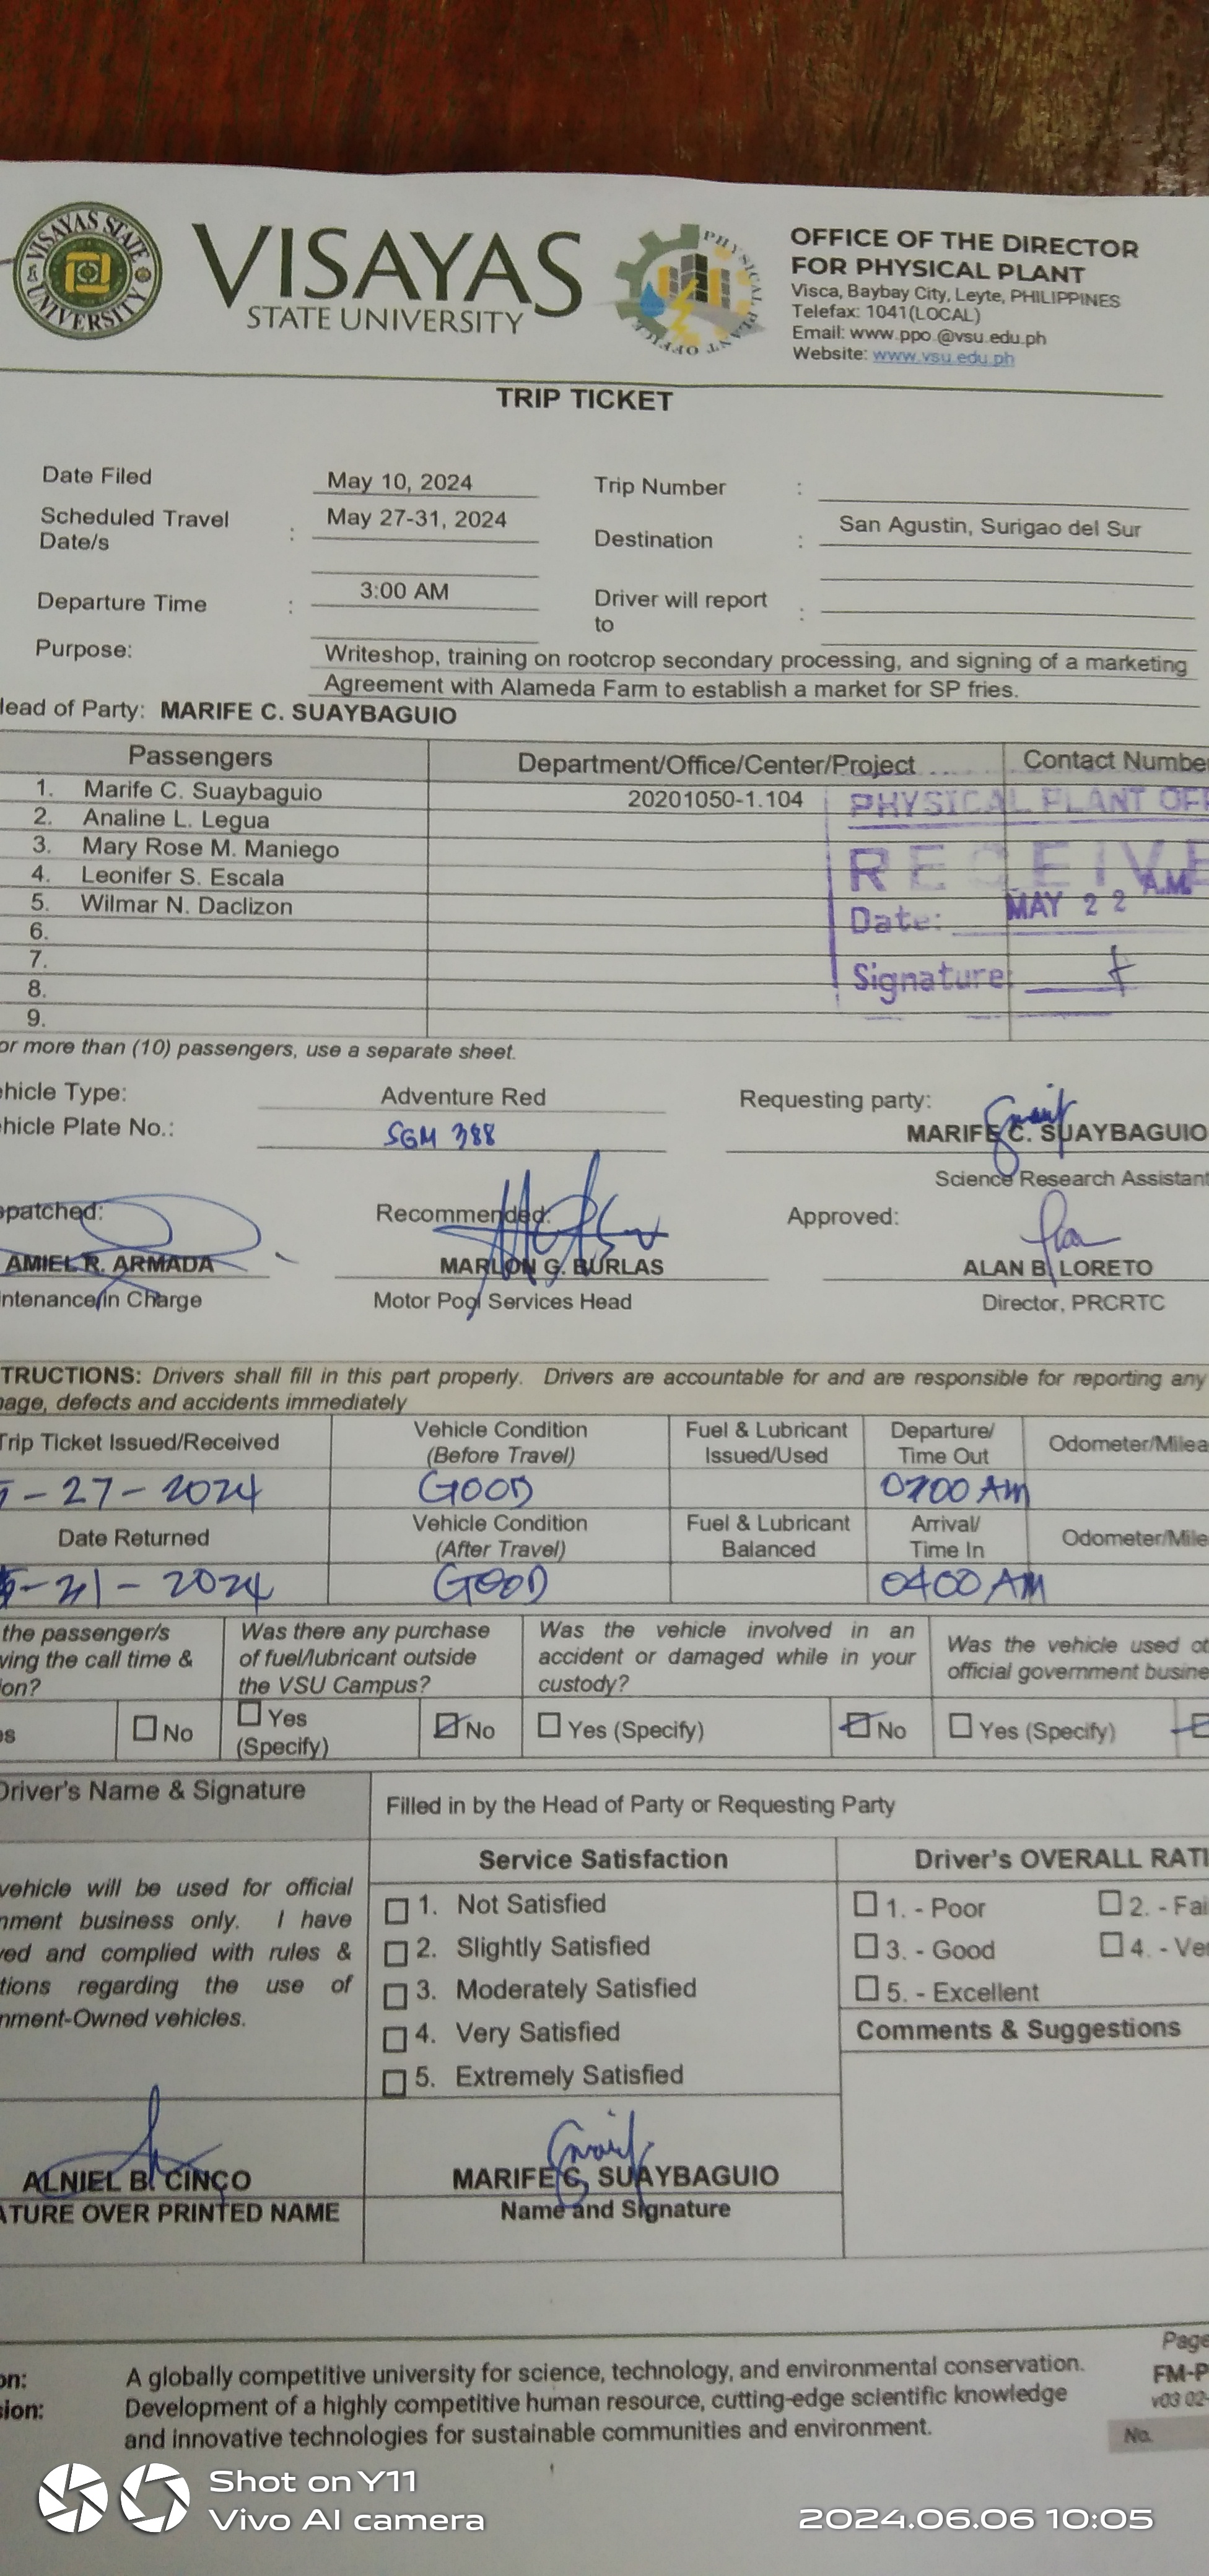 VISAYAS STATE UNIVERSITY
VISAYAS
STATE UNIVERSITY
PHYSICAL PLANT OFFICE
OFFICE OF THE DIRECTOR
FOR PHYSICAL PLANT
Visca, Baybay City, Leyte, PHILIPPINES
Telefax: 1041(LOCAL)
Email: www.ppo.@vsu.edu.ph
Website: www.vsu.edu.ph
TRIP TICKET
Date Filed May 10, 2024 Trip Number :
Scheduled Travel Date/s : May 27-31, 2024 Destination : San Agustin, Surigao del Sur
Departure Time : 3:00 AM Driver will report to :
Purpose: Writeshop, training on rootcrop secondary processing, and signing of a marketing
Agreement with Alameda Farm to establish a market for SP fries.
lead of Party: MARIFE C. SUAYBAGUIO
Passengers Department/Office/Center/Project Contact Numbe
1. Marife C. Suaybaguio 20201050-1.104
2. Analine L. Legua
3. Mary Rose M. Maniego
4. Leonifer S. Escala
5. Wilmar N. Daclizon
6.
7.
8.
9.
PHYSICAL PLANT OFF
RECEIVE
A.M.
Date: MAY 22
Signature:
or more than (10) passengers, use a separate sheet.
hicle Type: Adventure Red Requesting party:
hicle Plate No.: SGM 388 MARIFE C. SUAYBAGUIO
Science Research Assistant
patched: Recommended: Approved:
AMIEL R. ARMADA MARLON G. BURLAS ALAN B. LORETO
ntenance in Charge Motor Pool Services Head Director, PRCRTC
TRUCTIONS: Drivers shall fill in this part properly. Drivers are accountable for and are responsible for reporting any
age, defects and accidents immediately
Trip Ticket Issued/Received Vehicle Condition (Before Travel) Fuel & Lubricant Issued/Used Departure/ Time Out Odometer/Milea
-27-2024 GOOD 0700 AM
Date Returned Vehicle Condition (After Travel) Fuel & Lubricant Balanced Arrival/ Time In Odometer/Mile
2024 GOOD 0400 AM
the passenger/s Was there any purchase Was the vehicle involved in an Was the vehicle used ot
ving the call time & of fuel/lubricant outside accident or damaged while in your official government busine
ion? the VSU Campus? custody?
s No Yes (Specify) No Yes (Specify) No Yes (Specify)
Driver's Name & Signature Filled in by the Head of Party or Requesting Party
Service Satisfaction Driver's OVERALL RATI
vehicle will be used for official
nment business only. I have
ved and complied with rules &
tions regarding the use of
nment-Owned vehicles.
1. Not Satisfied
2. Slightly Satisfied
3. Moderately Satisfied
4. Very Satisfied
5. Extremely Satisfied
1. - Poor 2. - Fai
3. - Good 4. - Ve
5. - Excellent
Comments & Suggestions
ALNIEL B. CINCO MARIFE C. SUAYBAGUIO
ATURE OVER PRINTED NAME Name and Signature
on: A globally competitive university for science, technology, and environmental conservation.
sion: Development of a highly competitive human resource, cutting-edge scientific knowledge
and innovative technologies for sustainable communities and environment.
Page
FM-P
v03 02-
No.
Shot on Y11
Vivo AI camera
2024.06.06 10:05